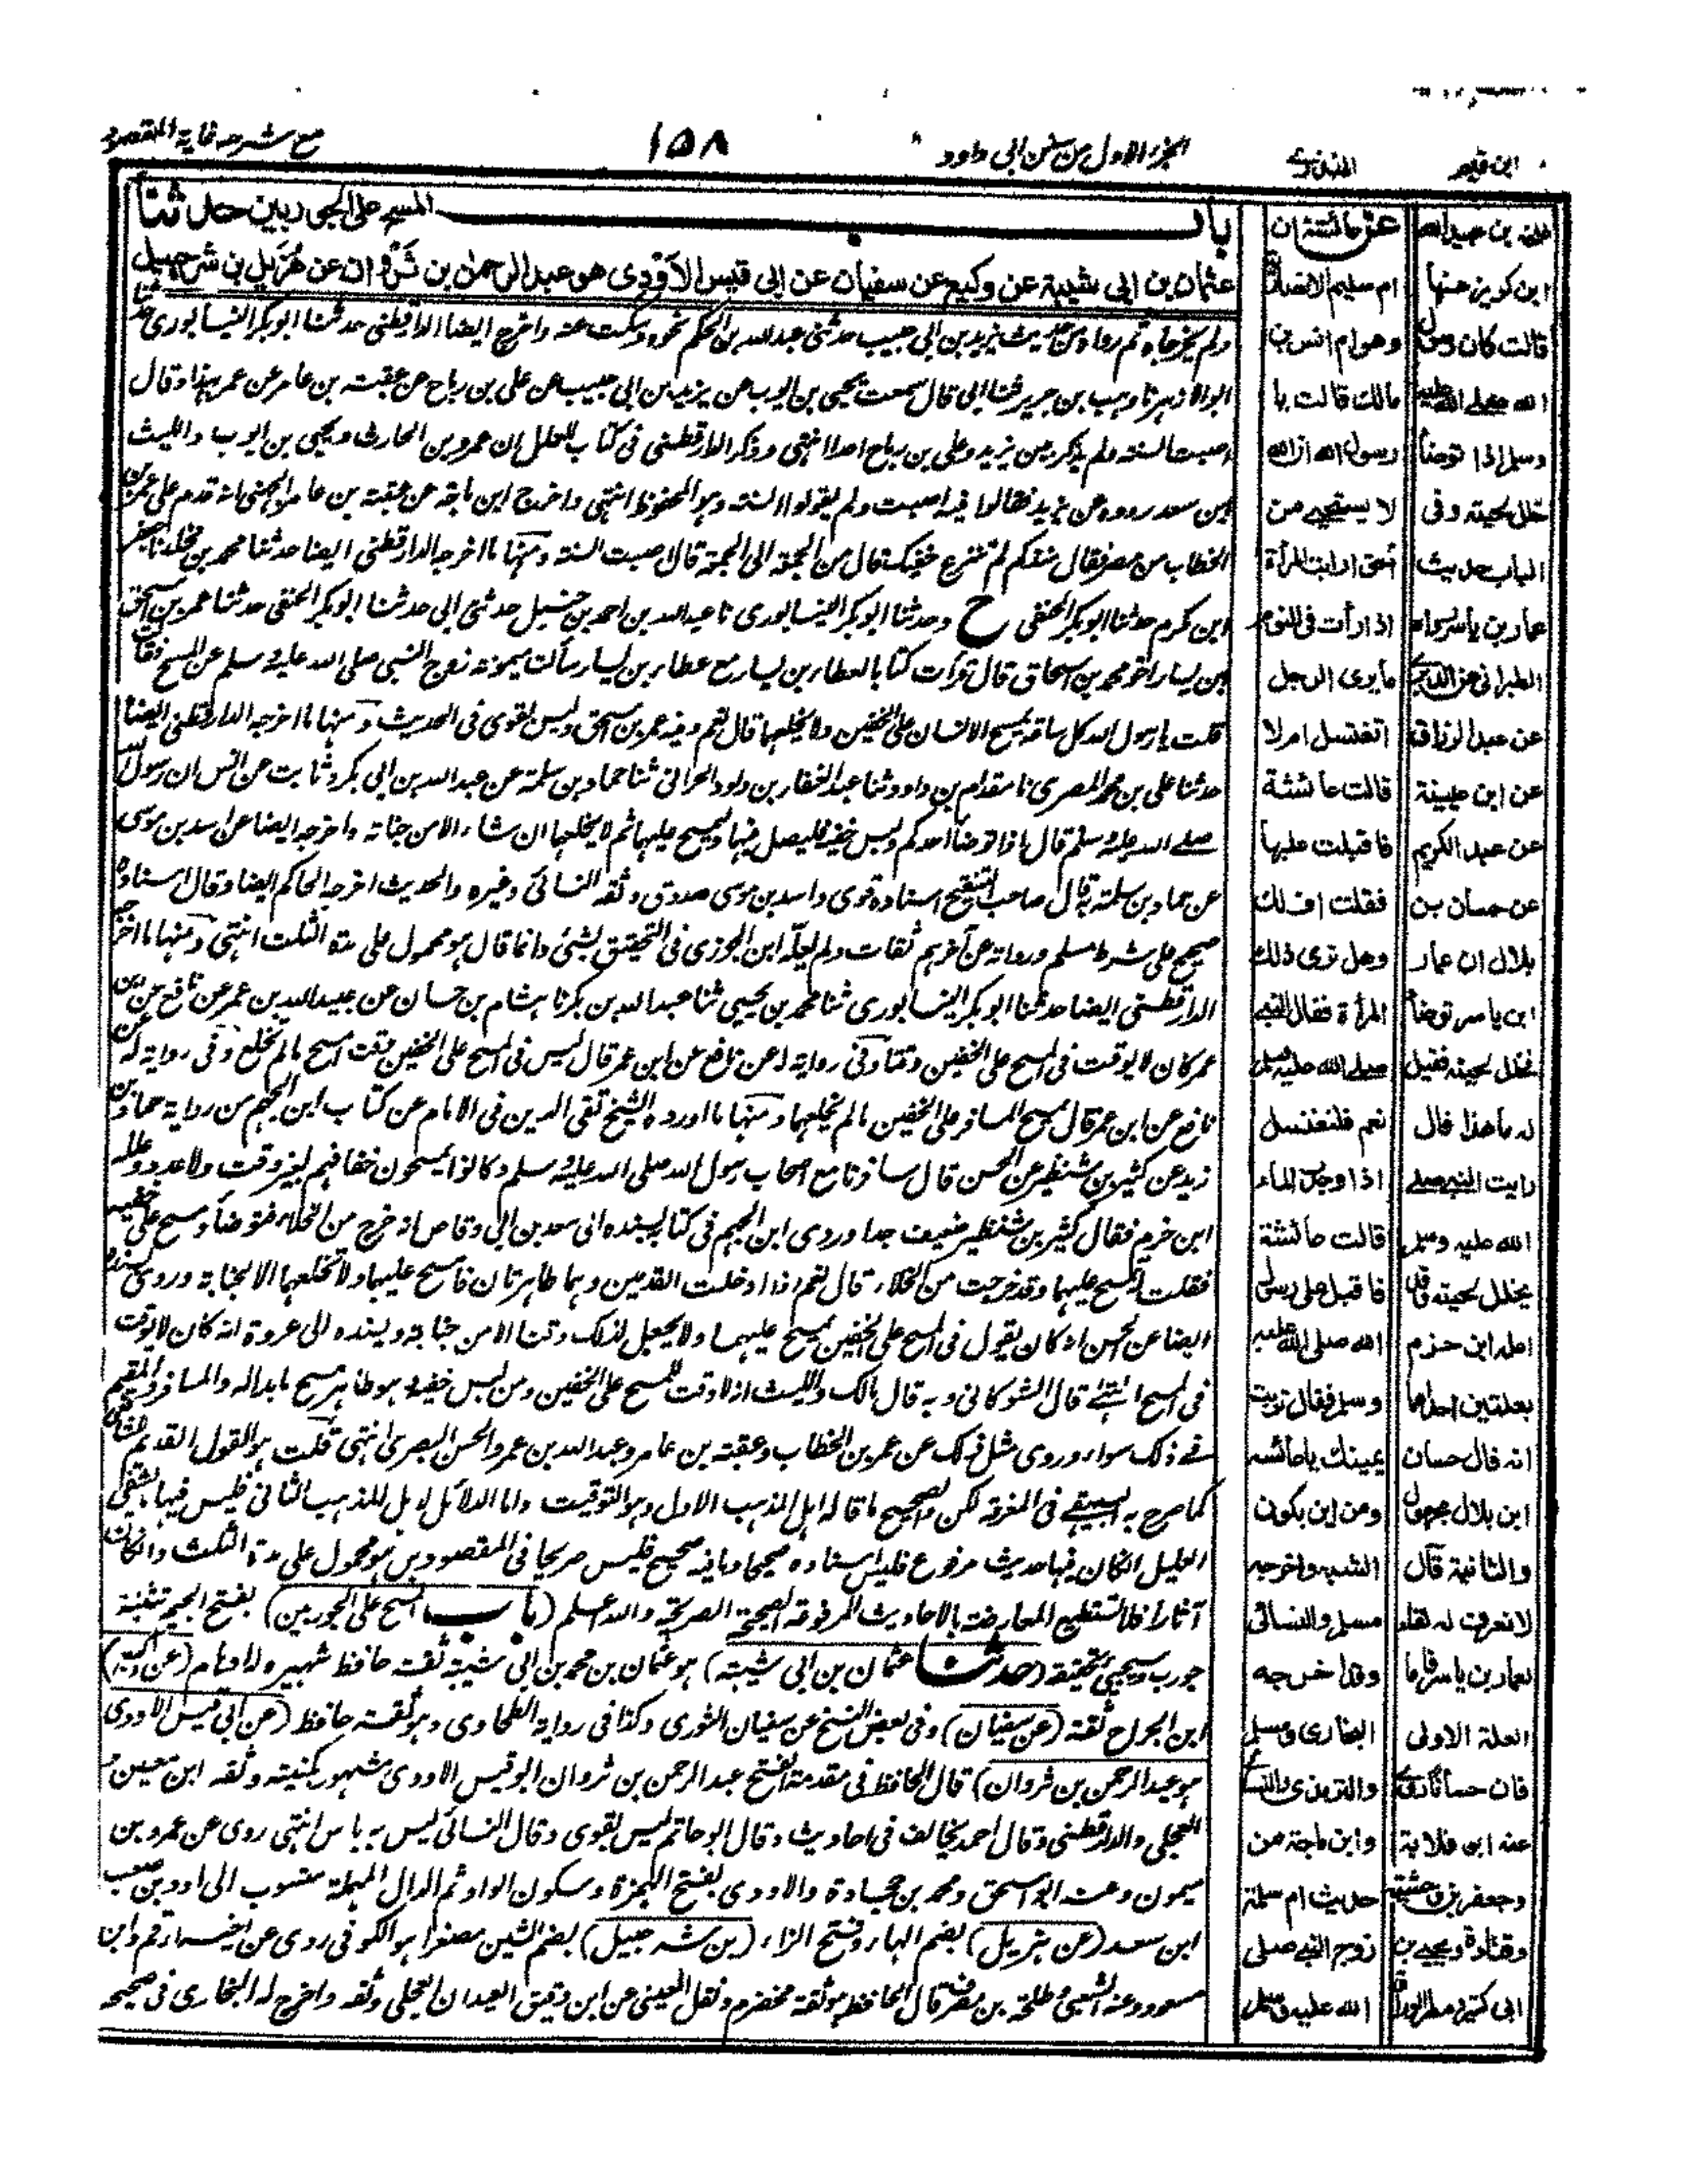 ابن قيم
المنذري
الجزء الاول من سنن ابي داود
١٥٨
مع شرحه غاية المقصود
باب المسح على الجوربين حدثنا
عثمان بن ابي شيبة عن وكيع عن سفيان عن ابي قيس الاودي هو عبد الرحمن بن ثروان عن هزيل بن شرحبيل
ولم يخرجاه ثم رواه من حديث يزيد بن ابي حبيب حدثني عبد الله بن الحكم نحوه وسكت عنه واخرج ايضا الدارقطني حدثنا ابو بكر النيسابوري حدثنا
ابو الازهر نا وهب بن جرير ثنا ابي قال سمعت يحيى بن ايوب عن يزيد بن ابي حبيب عن علي بن رباح عن عقبة بن عامر عن عمر بهذا وقال
اصبت السنة ولم يذكر بين يزيد وعلي بن رباح احدا انتهى وذكر الدارقطني في كتاب العلل ان عمرو بن الحارث ويحيى بن ايوب والليث
ابن سعد رووه عن يزيد فقالوا فيه اصبت ولم يقولوا السنة وهو المحفوظ انتهى واخرج ابن ماجه عن عقبة بن عامر الجهني انه قدم على عمر بن
الخطاب من مصر فقال منذ كم لم تنزع خفيك قال من الجمعة الى الجمعة قال اصبت السنة ومنها ما اخرجه الدارقطني ايضا حدثنا محمد بن مخلد نا جعفر
ابن مكرم حدثنا ابو بكر الحنفي ح وحدثنا ابو بكر النيسابوري نا عبد الله بن احمد بن حنبل حدثني ابي حدثنا ابو بكر الحنفي حدثنا عمر بن اسحق
ابن يسار اخو محمد بن اسحاق قال قرأت كتابا لعطاء بن يسار مع عطاء بن يسار سألت ميمونة زوج النبي صلى الله عليه وسلم عن المسح فقالت
قلت يا رسول الله كل ساعة يمسح الانسان على الخفين ولا يخلعهما قال نعم وفيه عمر بن اسحق وليس بقوي في الحديث ومنها ما اخرجه الدارقطني ايضا
حدثنا علي بن محمد المصري نا مقدام بن داود ثنا عبد الغفار بن داود الحراني ثنا حماد بن سلمة عن عبد الله بن ابي بكر وثابت عن انس ان رسول الله
صلى الله عليه وسلم قال اذا توضأ احدكم ولبس خفيه فليصل فيهما وليمسح عليهما ثم لا يخلعهما ان شاء الا من جنابة واخرجه ايضا عن اسد بن موسى
عن حماد بن سلمة به قال صاحب التنقيح اسناده قوي واسد بن موسى صدوق وثقه النسائي وغيره والحديث اخرجه الحاكم ايضا وقال اسناده
صحيح على شرط مسلم ورواته عن آخرهم ثقات ولم يعله ابن الجوزي في التحقيق بشئ وانما قال هو محمول على مدة الثلث انتهى ومنها ما اخرجه
الدارقطني ايضا حدثنا ابو بكر النيسابوري ثنا محمد بن يحيى ثنا عبد الله بن بكر نا هشام بن حسان عن عبيد الله بن عمر عن نافع عن ابن
عمر كان لا يوقت في المسح على الخفين وقتا وفي رواية له عن نافع عن ابن عمر قال ليس في المسح على الخفين وقت امسح ما لم تخلع وفي رواية له عن
نافع عن ابن عمر قال يمسح المسافر على الخفين ما لم يخلعهما ومنها ما اورده الشيخ تقي الدين في الامام عن كتاب ابن الجهم من رواية حماد بن
زيد عن كثير بن شنظير عن الحسن قال سافرنا مع اصحاب رسول الله صلى الله عليه وسلم وكانوا يمسحون خفافهم بغير وقت ولا عدد وعلله
ابن حزم فقال كثير بن شنظير ضعيف جدا وروى ابن الجهم في كتابه بسنده الى سعد بن ابي وقاص انه خرج من الخلاء فتوضأ ومسح على خفيه
فقلت اتمسح عليهما وقد خرجت من الخلاء قال نعم اذا ادخلت القدمين وهما طاهرتان فامسح عليهما ولا تخلعهما الا لجنابة وروى بسنده
ايضا عن الحسن انه كان يقول في المسح على الخفين يمسح عليهما ولا يجعل لذلك وقتا الا من جنابة وبسنده الى عروة انه كان لا يوقت
في المسح انتهى قال الشوكاني وبه قال مالك والليث انه لا وقت للمسح على الخفين ومن لبس خفيه وهو طاهر مسح ما بدا له والمسافر والمقيم
في ذلك سواء وروى مثل ذلك عن عمر بن الخطاب وعقبة بن عامر وعبد الله بن عمر والحسن البصري انتهى قلت هو القول القديم للشافعي
كما صرح به البيهقي في المعرفة لكن الصحيح ما قاله اهل المذهب الاول وهو التوقيت واما الدلائل لاهل المذهب الثاني فليس فيها ما يشفي
العليل انكان فيها حديث مرفوع فليس اسناده صحيحا وما فيه صحيح فليس صريحا في المقصود بل هو محمول على مدة الثلث وانكان
آثارا فلا تستطيع المعارضة بالاحاديث المرفوعة الصحيحة الصريحة والله اعلم (باب المسح على الجوربين) بفتح الجيم تثنية
جورب ويجيء تحقيقه (حدثنا عثمان بن ابي شيبة) هو عثمان بن محمد بن ابي شيبة ثقة حافظ شهير وله اوهام (عن وكيع)
ابن الجراح ثقة (عن سفيان) وفي بعض النسخ عن سفيان الثوري وكذا في رواية الطحاوي وهو ثقة حافظ (عن ابي قيس الاودي
هو عبد الرحمن بن ثروان) قال الحافظ في مقدمة الفتح عبد الرحمن بن ثروان ابو قيس الاودي مشهور بكنيته وثقه ابن معين و
العجلي والدارقطني وقال احمد يخالف في احاديث وقال ابو حاتم ليس بقوي وقال النسائي ليس به باس انتهى روى عن عمرو بن
ميمون وعنه ابو اسحق ومحمد بن جحادة والاودي بفتح الهمزة وسكون الواو ثم الدال المهملة منسوب الى اود بن صعب
ابن سعد (عن هزيل) بضم الهاء وفتح الزاء (بن شرحبيل) بضم الشين مصغرا هو الكوفي روى عن اخيه ارقم وابن
مسعود وعنه الشعبي وطلحة بن مصرف قال الحافظ هو ثقة مخضرم ونقل العيني عن ابن دقيق العيد ان العجلي وثقه واخرج له البخاري في صحيحه
عن عائشة ان
ام سليم الانصارية
وهي ام انس بن
مالك قالت يا
رسول الله ان الله
لا يستحيي من
الحق ارايت المرأة
اذا رأت في النوم
ما يرى الرجل
اتغتسل ام لا
قالت عائشة
فاقبلت عليها
فقلت اف لك
وهل ترى ذلك
المرأة فقال النبي
صلى الله عليه وسلم
نعم فلتغتسل
اذا وجدت الماء
قالت عائشة
فاقبل علي رسول
الله صلى الله عليه
وسلم فقال تربت
يمينك يا عائشة
ومن اين يكون
الشبه واخرجه
مسلم والنسائي
وقد اخرجه
البخاري ومسلم
والترمذي والنسائي
وابن ماجة من
حديث ام سلمة
زوج النبي صلى
الله عليه وسلم
طلحة بن عبيد الله
ابن كريز عنها
قالت كان رسول
الله صلى الله عليه
وسلم اذا توضأ
خلل لحيته وفي
الباب حديث
عمار بن ياسر رواه
الطبراني عن الدبري
عن عبد الرزاق
عن ابن عيينة
عن عبد الكريم
عن حسان بن
بلال ان عمار
ابن ياسر توضأ
فخلل لحيته فقيل
له ما هذا قال
رايت النبي صلى
الله عليه وسلم
يخلل لحيته وقد
اعله ابن حزم
بعلتين احداهما
انه قال حسان
ابن بلال مجهول
والثانية قال
لا نعرف له لقاء
لعمار بن ياسر فاما
العلة الاولى
فان حسانا روى
عنه ابو قلابة
وجعفر بن ابي وحشية
وقتادة ويحيى بن
ابي كثير ومطر الوراق